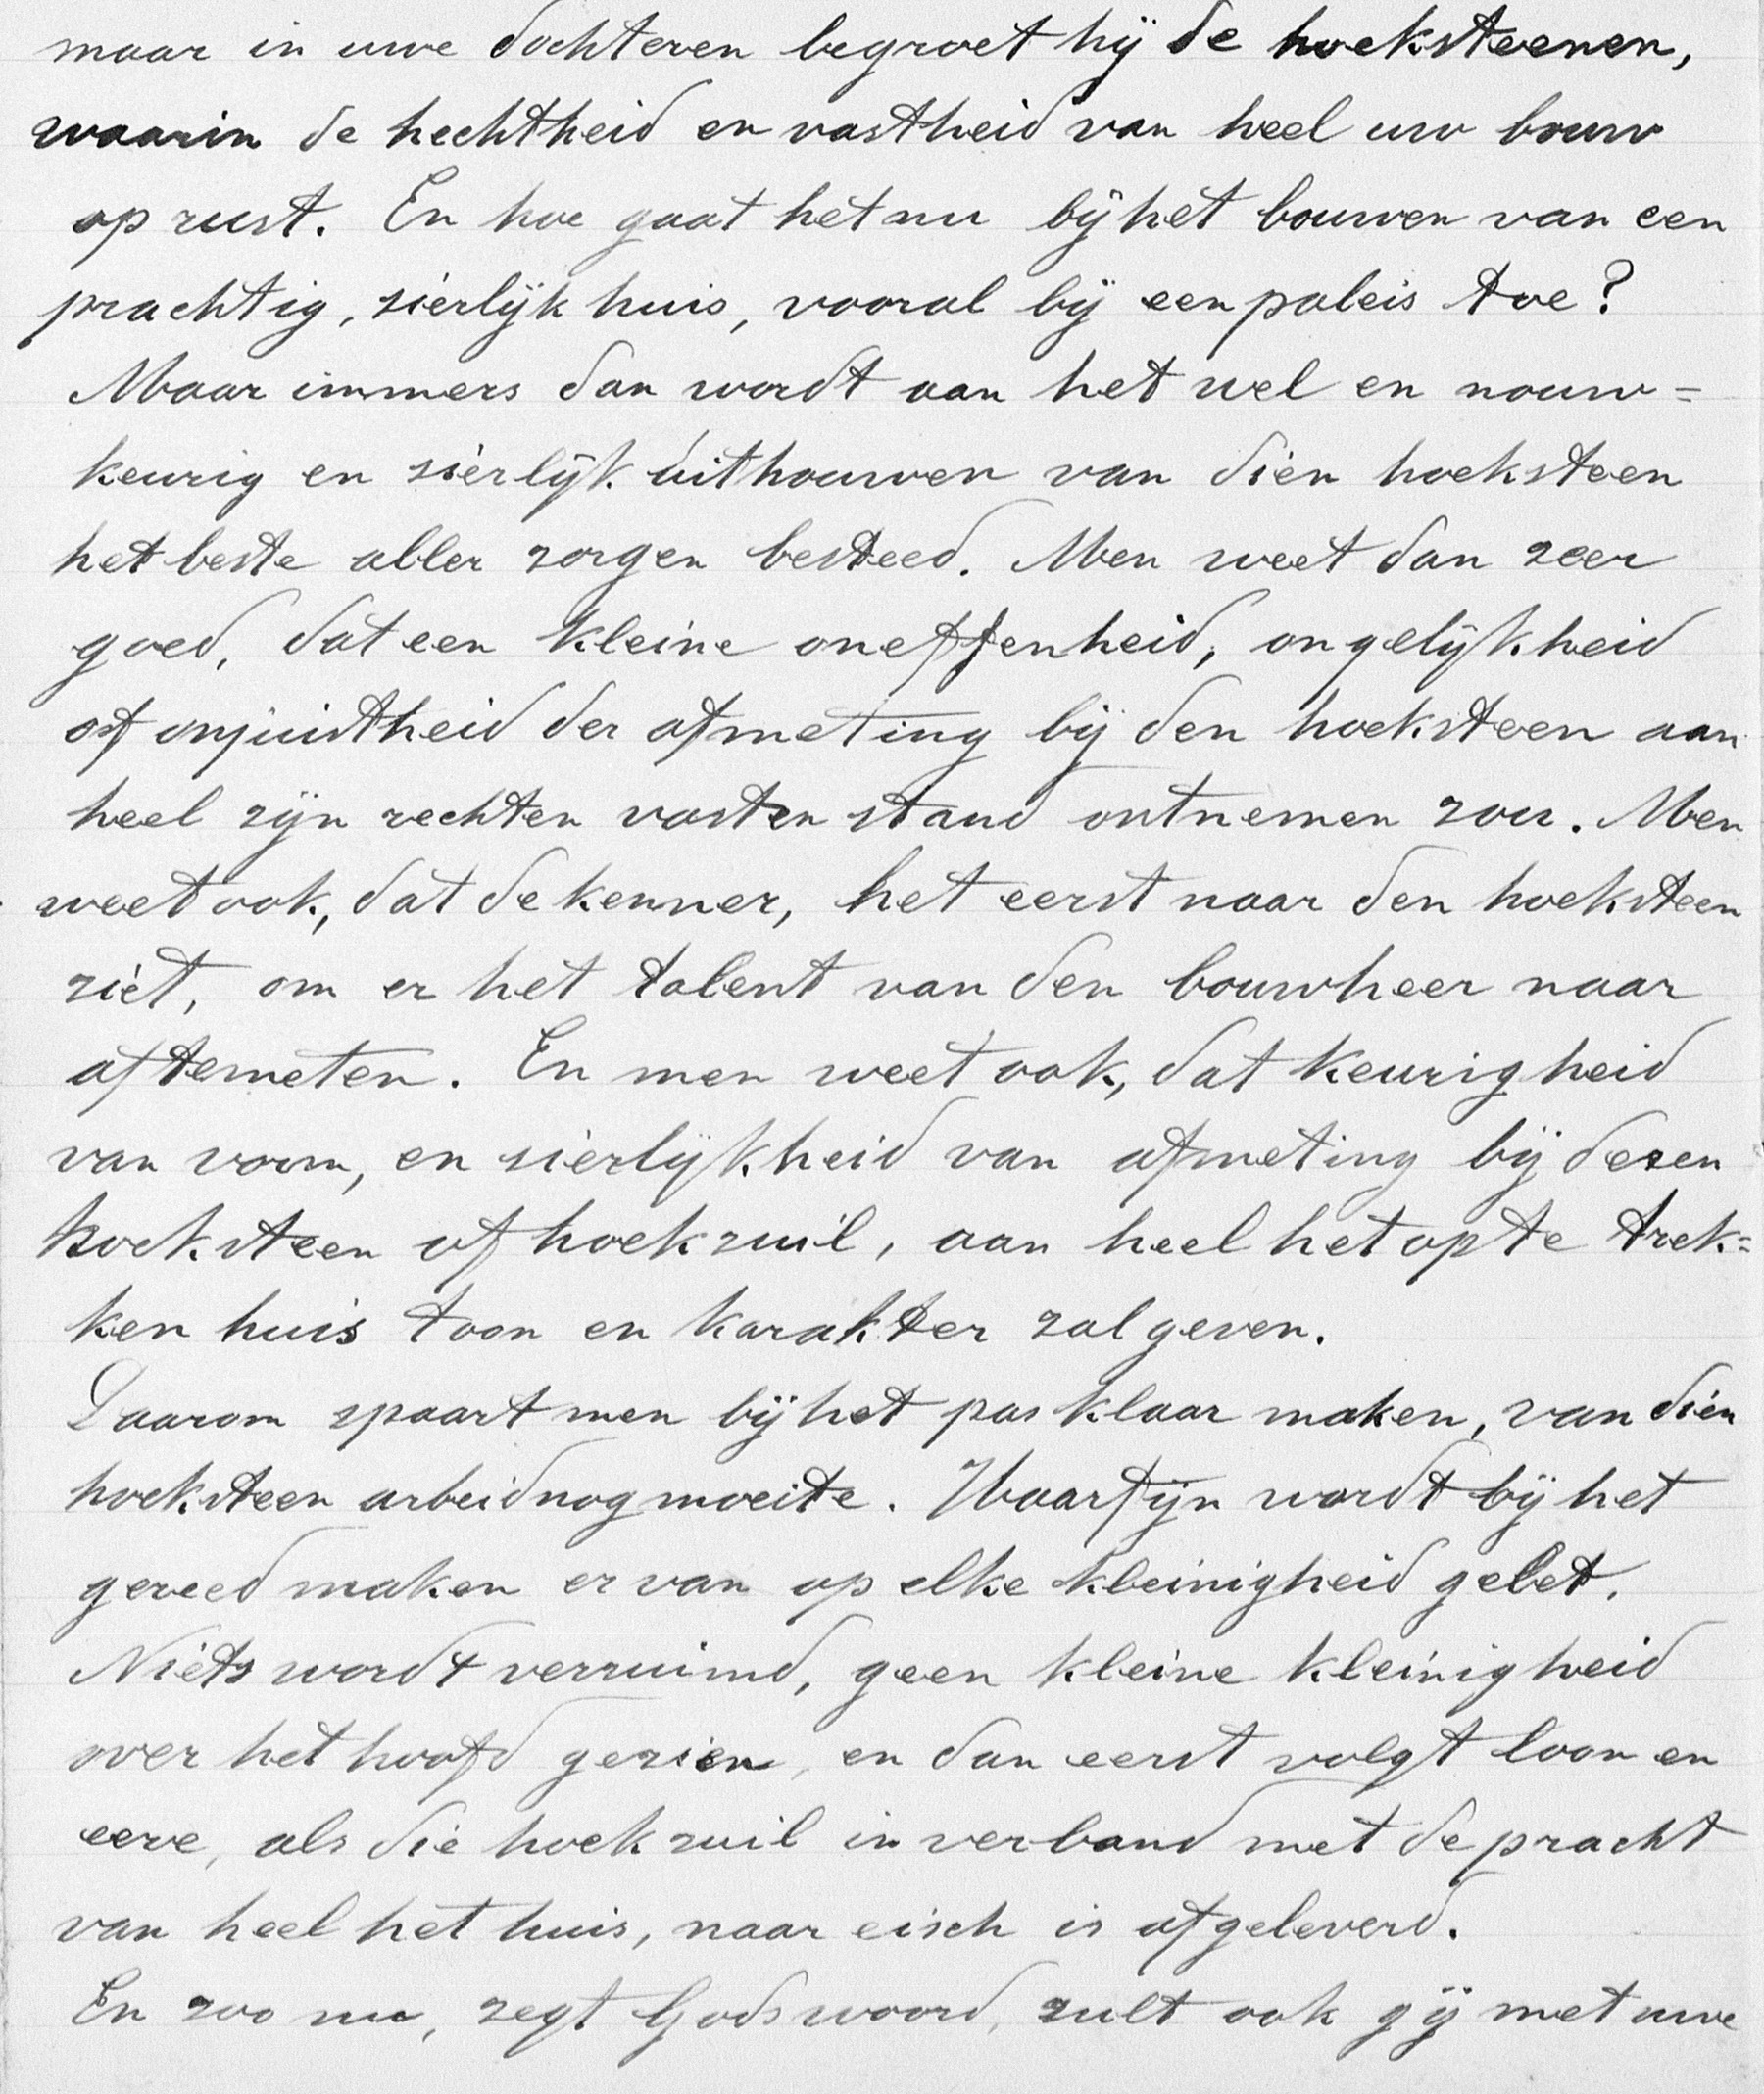 maar in uwe dochteren begroet hij de hoeksteenen,
waarin de hechtheid en vastheid van heel uw bouw
op rust. En hoe gaat het nu bij het bouwen van een
prachtig, sierlijk huis, vooral bij een paleis toe?
Maar immers dan wordt aan het wel en nauw=
keurig en sierlijk uithouwen van dien hoeksteen
het beste aller zorgen besteed. Men weet dan zeer
goed, dat een kleine oneffenheid, ongelijkheid
of onjuistheid der afmeting bij den hoeksteen aan
heel zijn rechten vasten stand ontnemen zou. Men
weet ook, dat de kenner, het eerst naar den hoeksteen
ziet, om er het talent van den bouwheer naar
aftemeten. En men weet ook, dat keurigheid
van vorm, en sierlijkheid van afmeting bij dezen
hoeksteen of hoekzuil, aan heel het op te trek=
ken huis toon en karakter zal geven.
Daarom spaart men bij het pasklaar maken, van dien
hoeksteen arbeid nog moeite. Haarfijn wordt bij het
gereed maken er van op elke kleinigheid gelet.
Niets wordt verruimd, geen kleine kleinigheid
over het hoofd gezien, en dan eerst volgt loon en
eere, als die hoekzuil in verband met de pracht
van heel het huis, naar eisch is afgeleverd.
En zoo nu, zegt Gods woord, zult ook gij met uwe